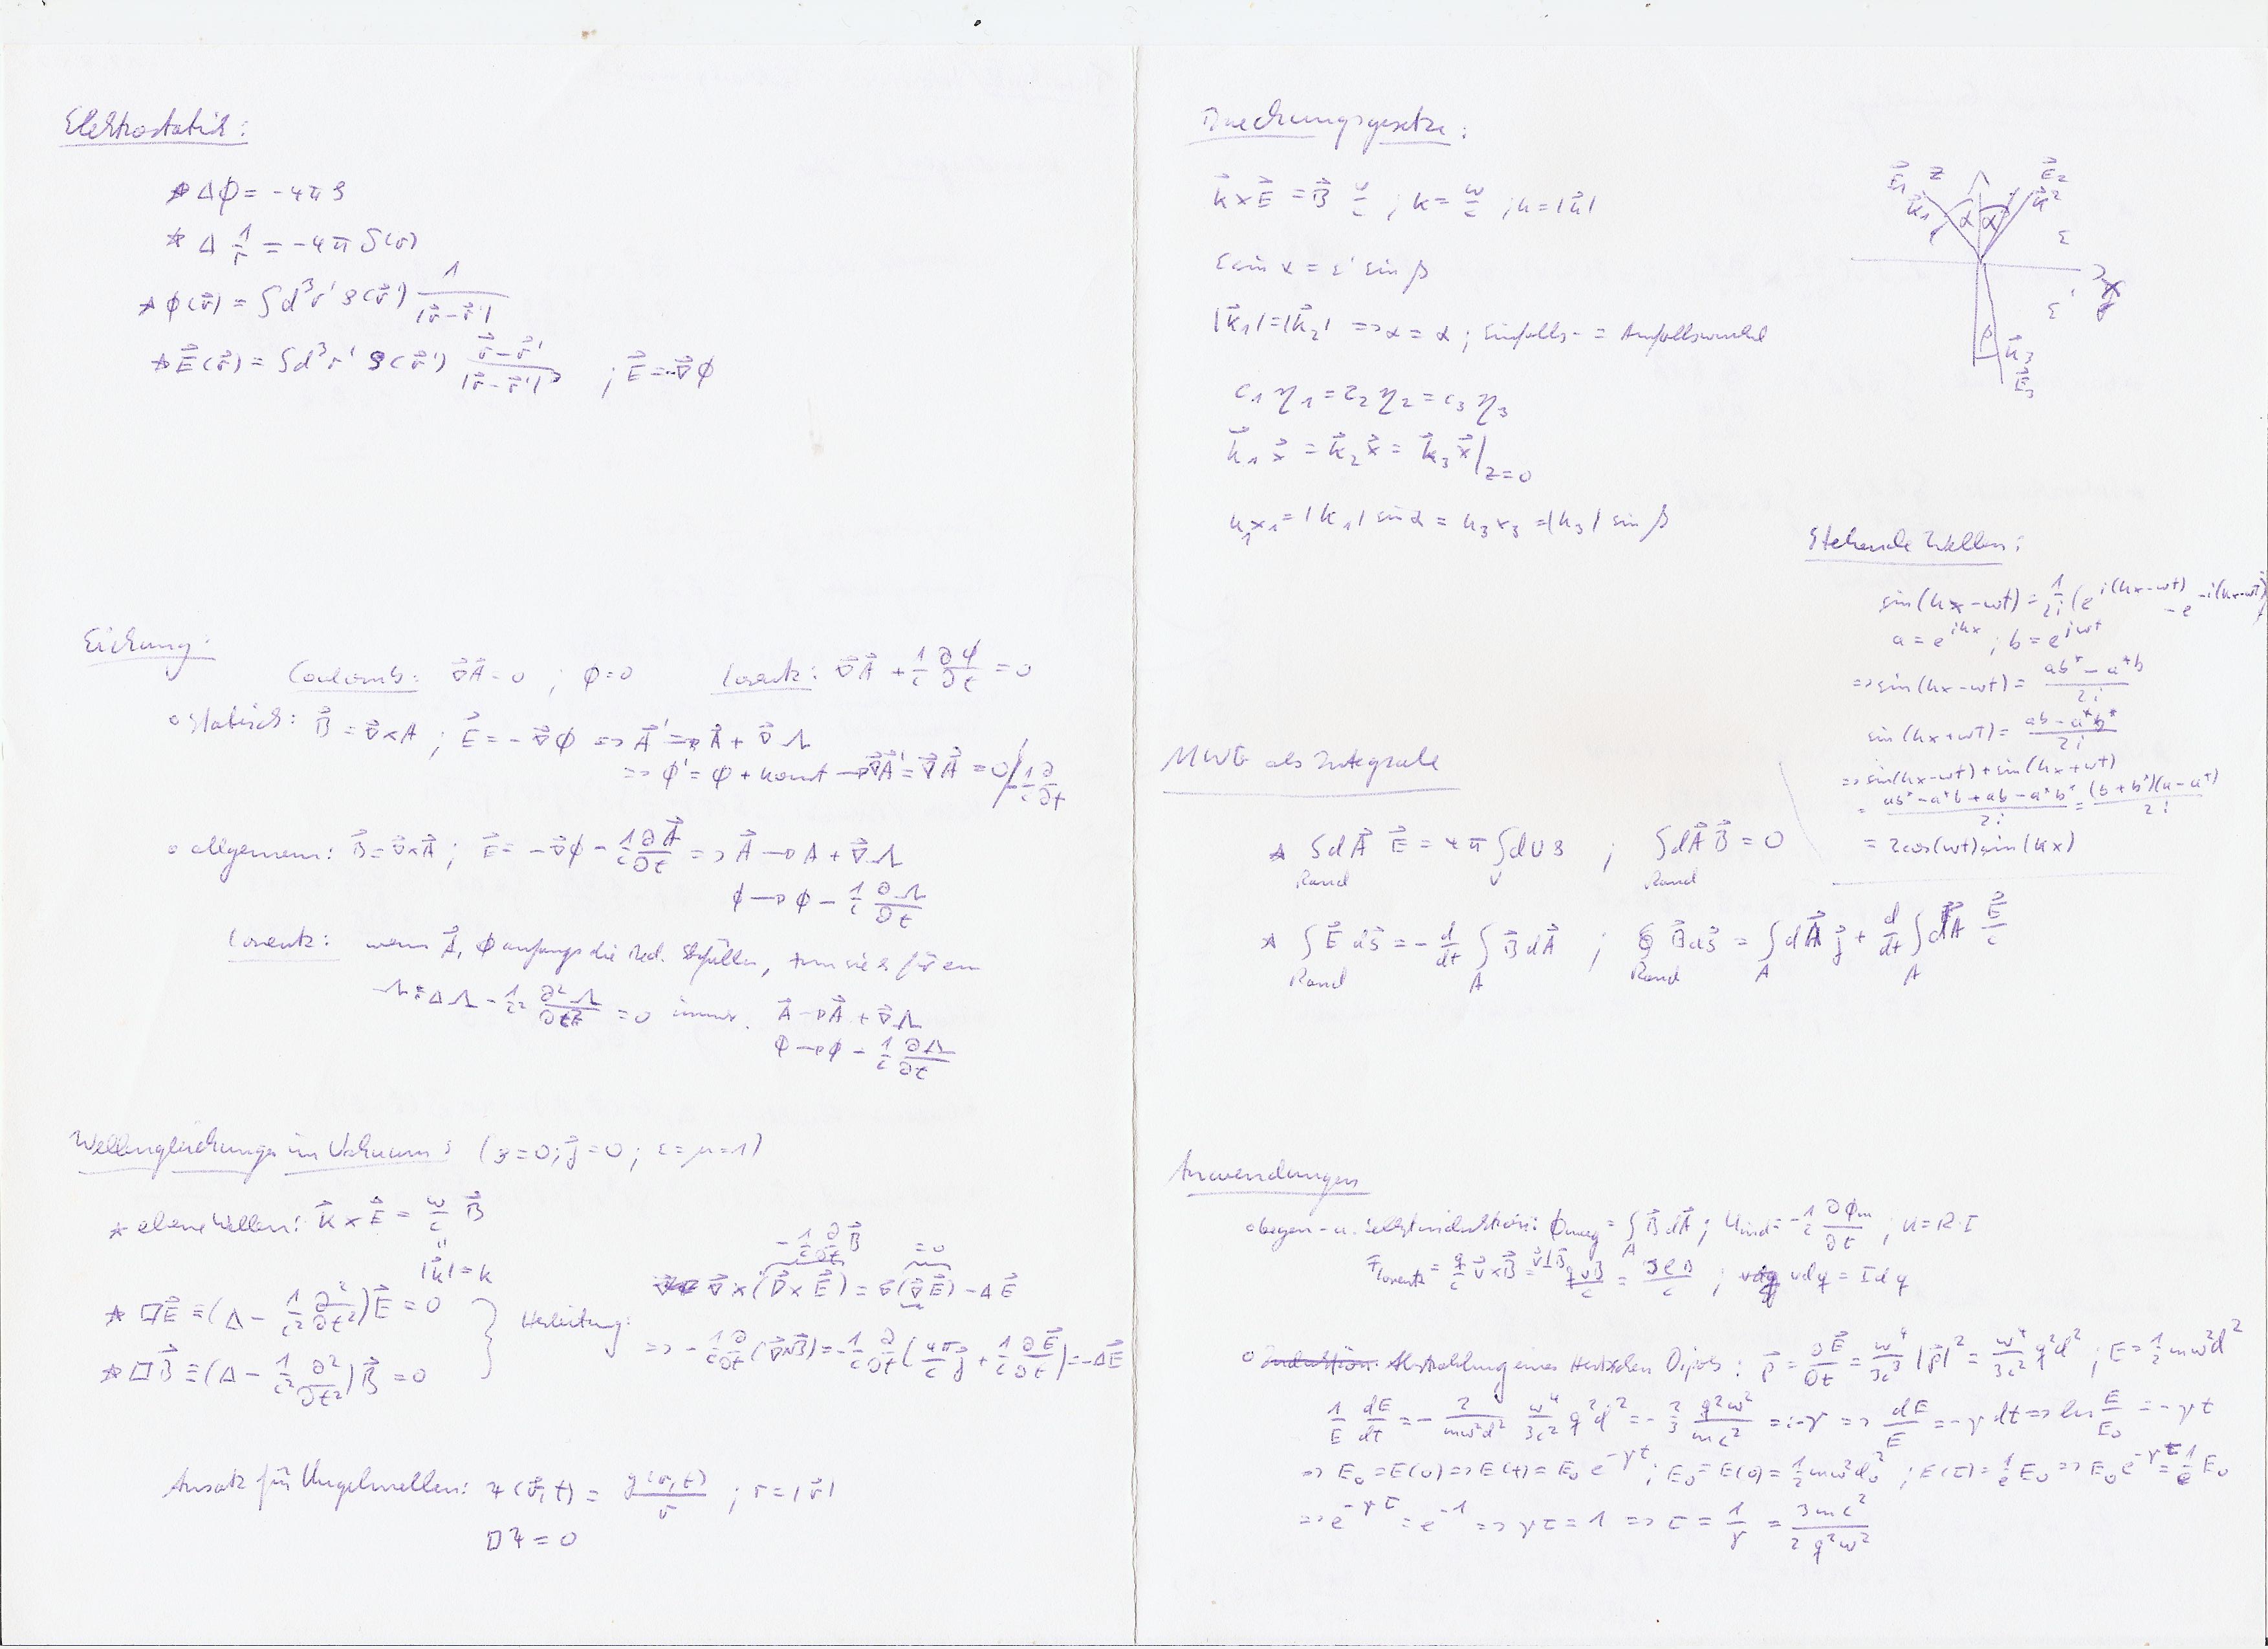 Elektrostatik:
* Δϕ = -4πρ
* Δ 1/r = -4π δ(r)
* ϕ(r⃗) = ∫d³r' ρ(r⃗') 1/|r⃗-r⃗'|
* E⃗(r⃗) = ∫d³r' ρ(r⃗') (r⃗-r⃗')/|r⃗-r⃗'|³ ; E⃗ = -∇⃗ϕ
Eichung:
Coulomb: ∇⃗A⃗ = 0 ; ϕ=0 Lorentz: ∇⃗A⃗ + 1/c ∂φ/∂t = 0
o statisch: B⃗ = ∇⃗×A ; E⃗ = -∇⃗ϕ => A⃗' = A⃗ + ∇⃗Λ
=> ϕ' = φ + konst → ∇⃗A⃗' = ∇⃗A⃗ = 0 / -1/c ∂/∂t
o allgemein: B⃗ = ∇⃗×A⃗ ; E⃗ = -∇⃗ϕ - 1/c ∂A⃗/∂t => A⃗ → A + ∇⃗Λ
ϕ → ϕ - 1/c ∂Λ/∂t
Lorentz: wenn A⃗, Φ anfangs die Bed. erfüllen, tun sie es für ein
Λ: ΔΛ - 1/c² ∂²Λ/∂t² = 0 immer. A⃗ → A⃗ + ∇⃗Λ
Φ → ϕ - 1/c ∂Λ/∂t
Wellengleichungen im Vakuum: (ρ=0; j⃗=0; ε=μ=1)
* ebene Wellen: k⃗ × E⃗ = ω/c B⃗
|k⃗| = k
* □E⃗ ≡ (Δ - 1/c² ∂²/∂t²)E⃗ = 0
* □B⃗ ≡ (Δ - 1/c² ∂²/∂t²)B⃗ = 0
Herleitung:
-1/c ∂/∂t B⃗ =0
∇⃗×(∇⃗×E⃗) = ∇⃗(∇⃗E⃗) - ΔE⃗
=> -1/c ∂/∂t (∇⃗×B⃗) = -1/c ∂/∂t (4π/c j⃗ + 1/c ∂E⃗/∂t) = -ΔE⃗
Ansatz für Kugelwellen: Ψ(r⃗,t) = g(r,t)/r ; r = |r⃗|
□Ψ = 0
Brechungsgesetze:
k⃗×E⃗ = B⃗ ω/c ; k = ω/c ; k = |k⃗|
ε sin α = ε' sin β
|k⃗₁| = |k⃗₂| => α = α ; Einfalls- = Ausfallswinkel
c₁η₁ = c₂η₂ = c₃η₃
k⃗₁x⃗ = k⃗₂x⃗ = k⃗₃x⃗ |z=0
k₁x₁ = |k₁| sin α = k₃x₃ = |k₃| sin β
E⃗₁ z E⃗₂
k⃗₁ α α k⃗₂
ε
ε'
β k⃗₃
E⃗₃
Stehende Wellen:
sin(kx-ωt) = 1/2i (e^i(kx-ωt) - e^-i(kx-ωt))
a = e^ikx ; b = e^iωt
=> sin(kx-ωt) = (ab* - a*b)/2i
sin(kx+ωt) = (ab - a*b*)/2i
=> sin(kx-ωt) + sin(kx+ωt)
= (ab* - a*b + ab - a*b*)/2i = (b+b*)(a-a*)/2i
= 2cos(ωt) sin(kx)
MWG als Integrale
* ∫dA⃗ E⃗ = 4π ∫dV ρ ; ∫dA⃗ B⃗ = 0
Rand V Rand
* ∫E⃗ ds⃗ = - d/dt ∫B⃗ dA⃗ ; ∮B⃗ ds⃗ = ∫dA⃗ j⃗ + d/dt ∫dA⃗ E⃗/c
Rand A Rand A A
Anwendungen
o Gegen- u. Selbstinduktion: ϕmag = ∫B⃗dA⃗ ; Uind = -1/c ∂ϕm/∂t ; U = R·I
A
F⃗Lorentz = q/c v⃗×B⃗ = v⃗⊥B⃗ qvB/c = IlB/c ; vdq = Idq
o Abstrahlung eines Hertzschen Dipols: P⃗ = ∂E⃗/∂t = ω⁴/3c³ |p⃗|² = ω⁴/3c² q²d² ; E = 1/2 mω²d²
1/E dE/dt = - 2/mω²d² ω⁴/3c² q²d² = -2/3 q²ω²/mc² =: -γ => dE/E = -γ dt => ln E/E₀ = -γt
=> E₀ = E(0) => E(t) = E₀ e^-γt ; E₀ = E(0) = 1/2 mω²d₀² ; E(τ) = 1/e E₀ => E₀ e^-γτ = 1/e E₀
=> e^-γτ = e^-1 => γτ = 1 => τ = 1/γ = 3mc²/2q²ω²